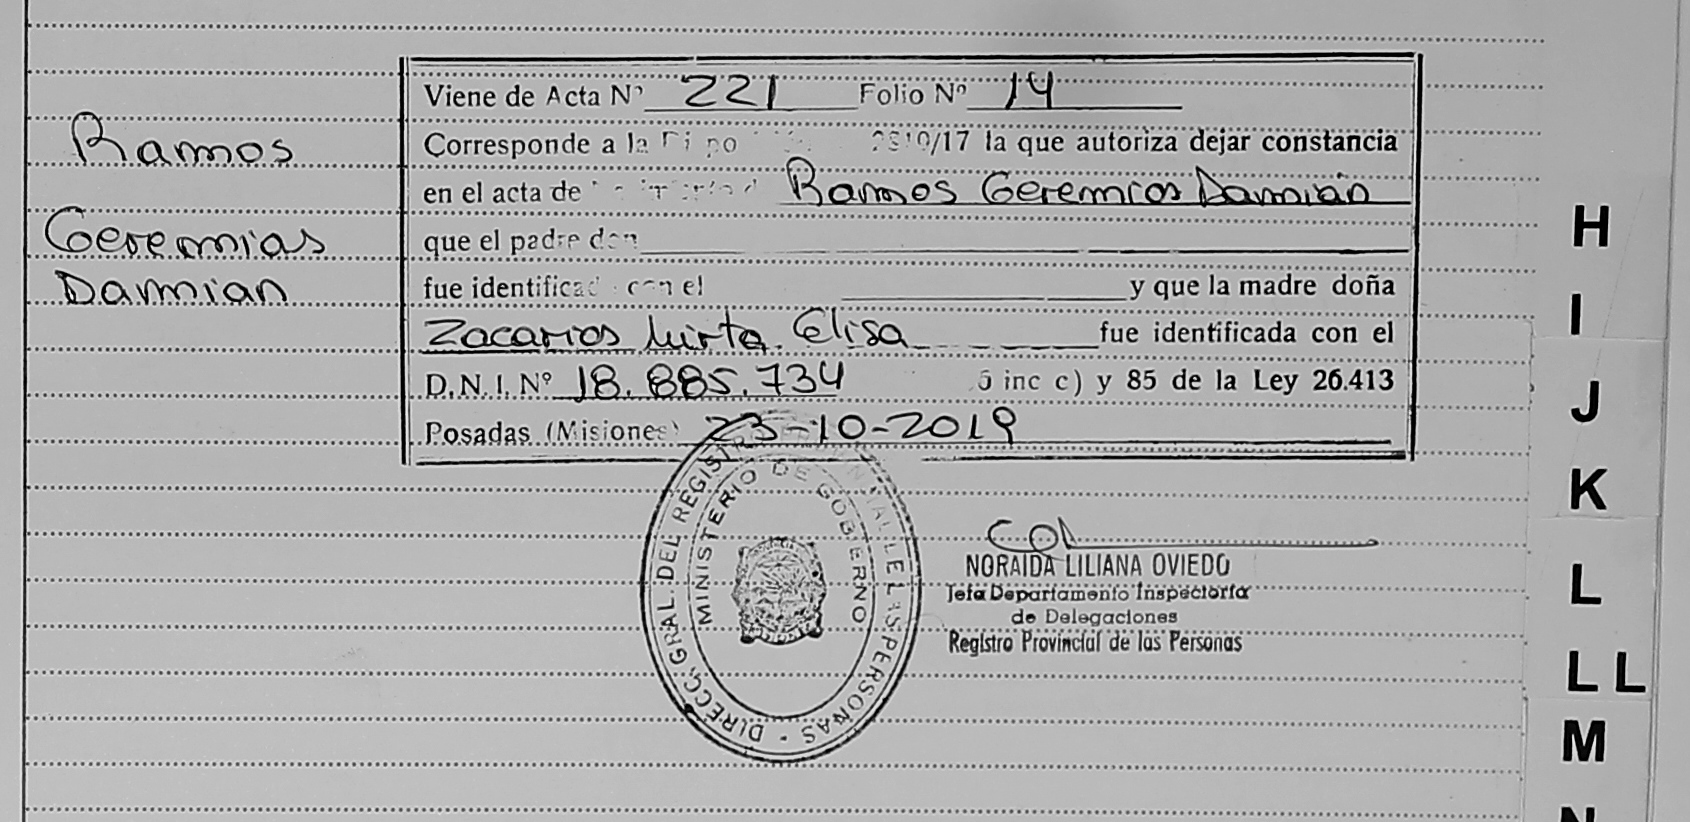 Viene de Acta Nº 221 Folio Nº 14
Ramos
Corresponde a la /17 la que autoriza dejar constancia
en el acta de Ramos Geremias Damián
Geremias
que el padre don
Damian
fue identificado con el y que la madre doña
Zacarias Mirta Elisa fue identificada con el
D.N.I. Nº 18.885.734 inc c) y 85 de la Ley 26.413
Posadas (Misiones) 23-10-2019
DIRECC. GRAL. DEL REGIST PERSONAS
MINISTERIO DE GOBIERNO
NORAIDA LILIANA OVIEDO
Jefa Departamento Inspectoría
de Delegaciones
Registro Provincial de las Personas
H
I
J
K
L
LL
M
N